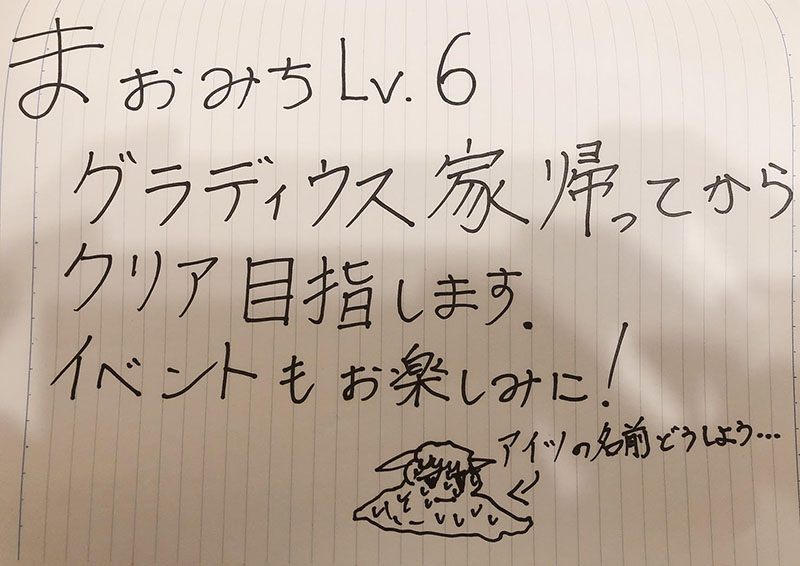 まおみちLv.6
グラディウス家帰ってから
クリア目指します.
イベントもお楽しみに!
アイツの名前どうしよう…